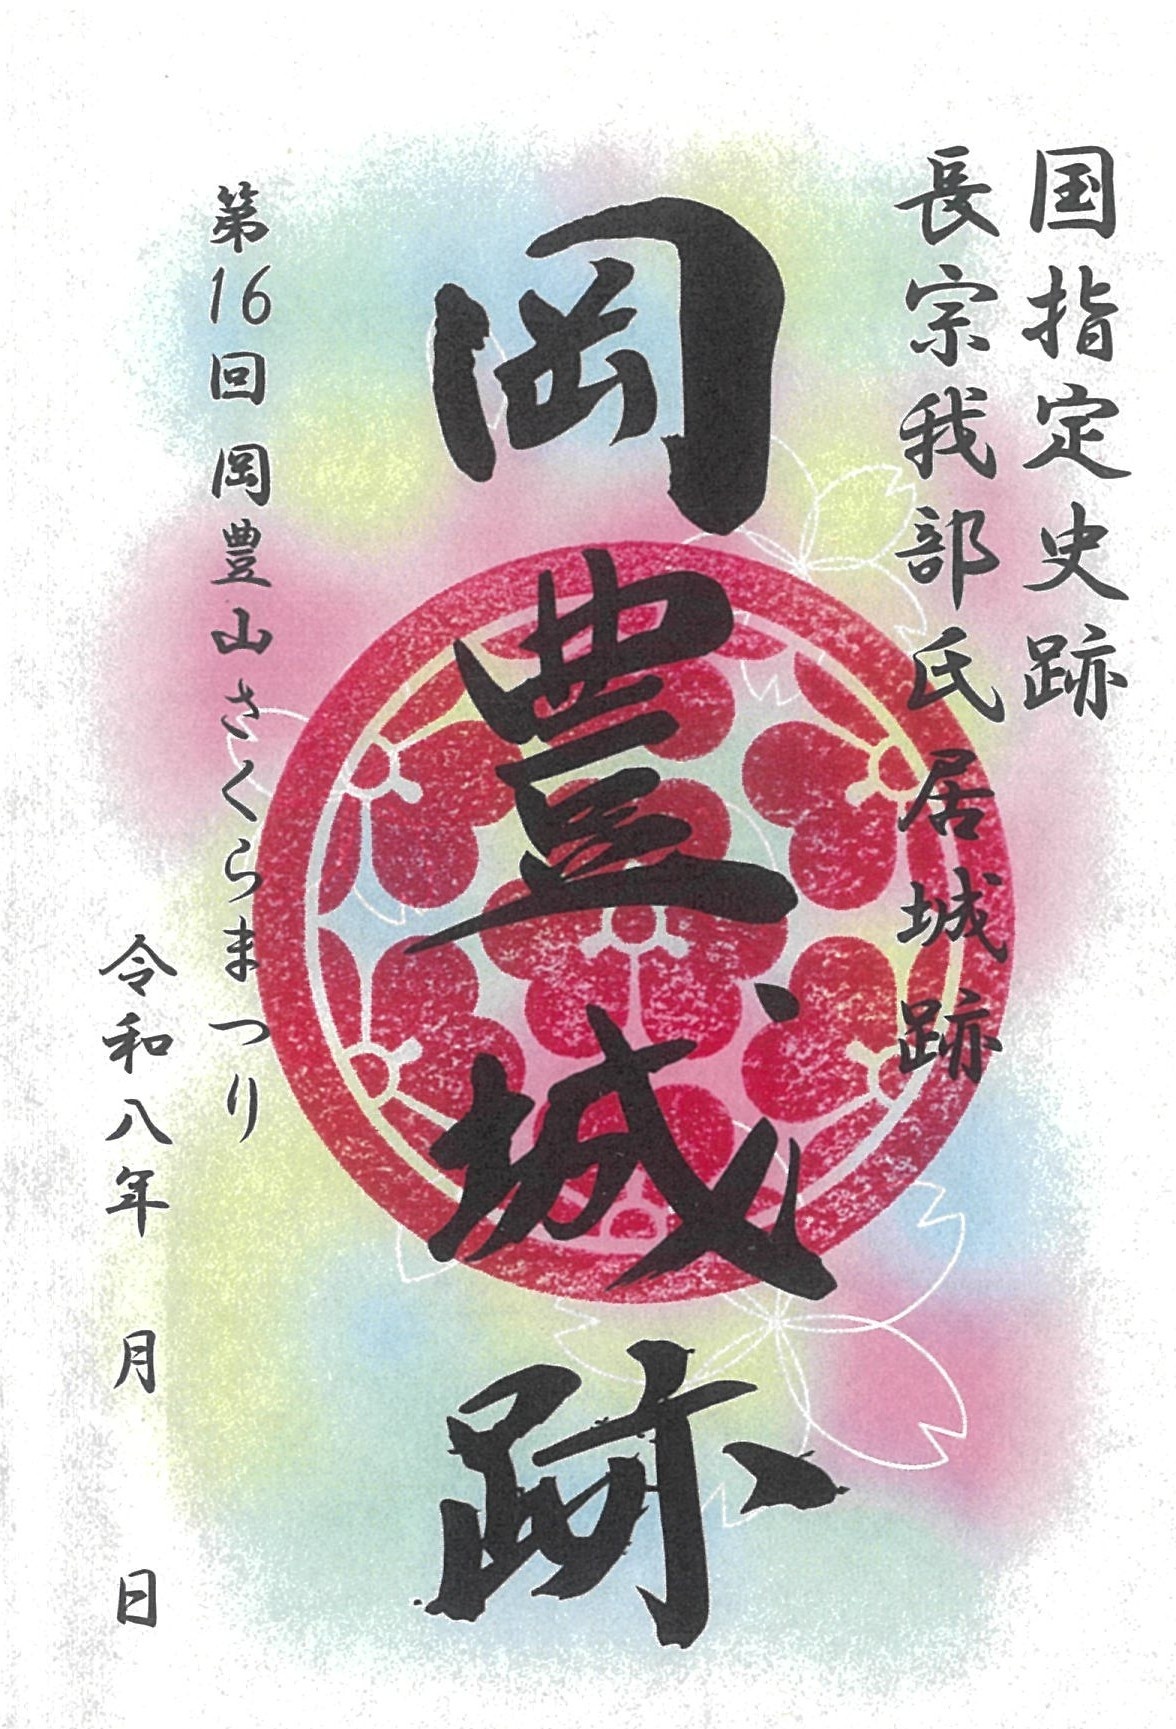 国指定史跡
長宗我部氏居城跡
岡豊城跡
第16回岡豊山さくらまつり
令和八年 月 日